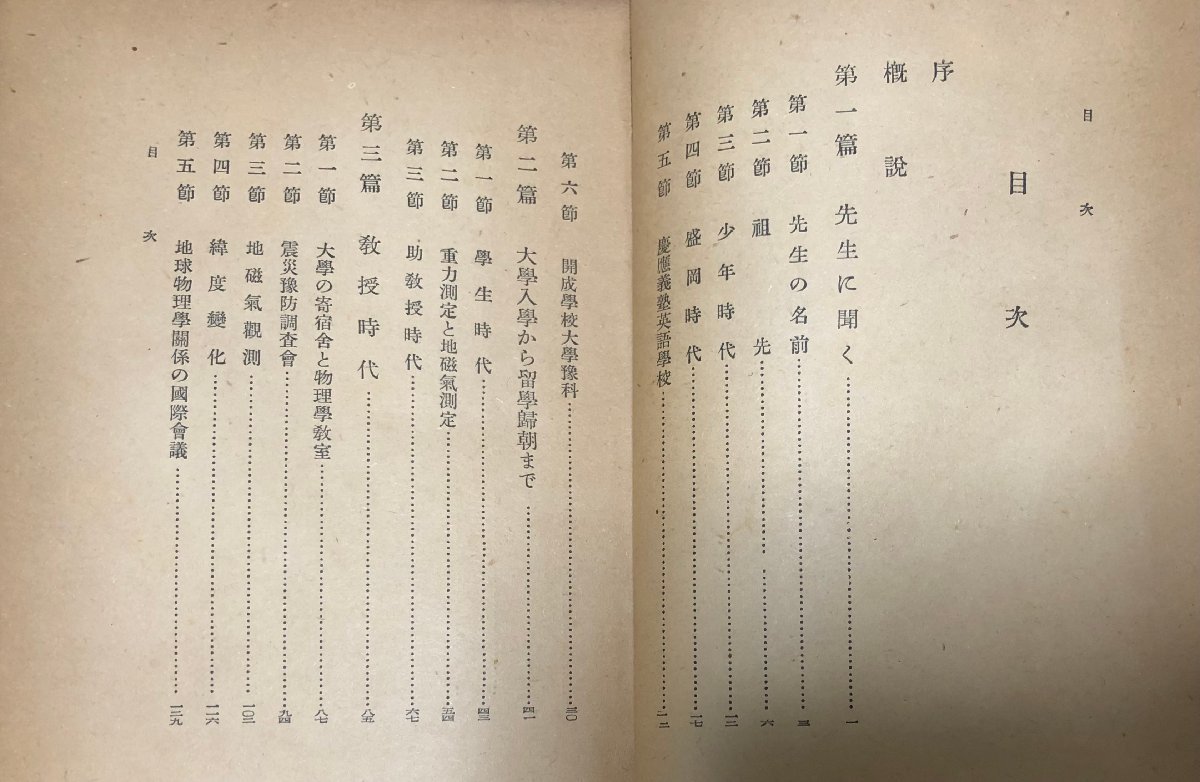 目次
目次
序
概説
第一篇 先生に聞く……一
第一節 先生の名前……三
第二節 祖先……六
第三節 少年時代……一二
第四節 盛岡時代……一七
第五節 慶應義塾英語學校……
第六節 開成學校大學豫科……三〇
第二篇 大學入學から留學歸朝まで……四一
第一節 學生時代……四三
第二節 重力測定と地磁氣測定……五四
第三節 助教授時代……六七
第三篇 教授時代……八五
第一節 大學の寄宿舍と物理學教室……八七
第二節 震災豫防調査會……九四
第三節 地磁氣觀測……一〇三
第四節 緯度變化……一一六
第五節 地球物理學關係の國際會議……一三九
目次